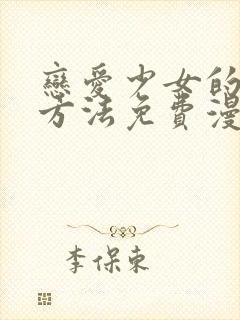 戀愛少女的
方法免費漫
李保東